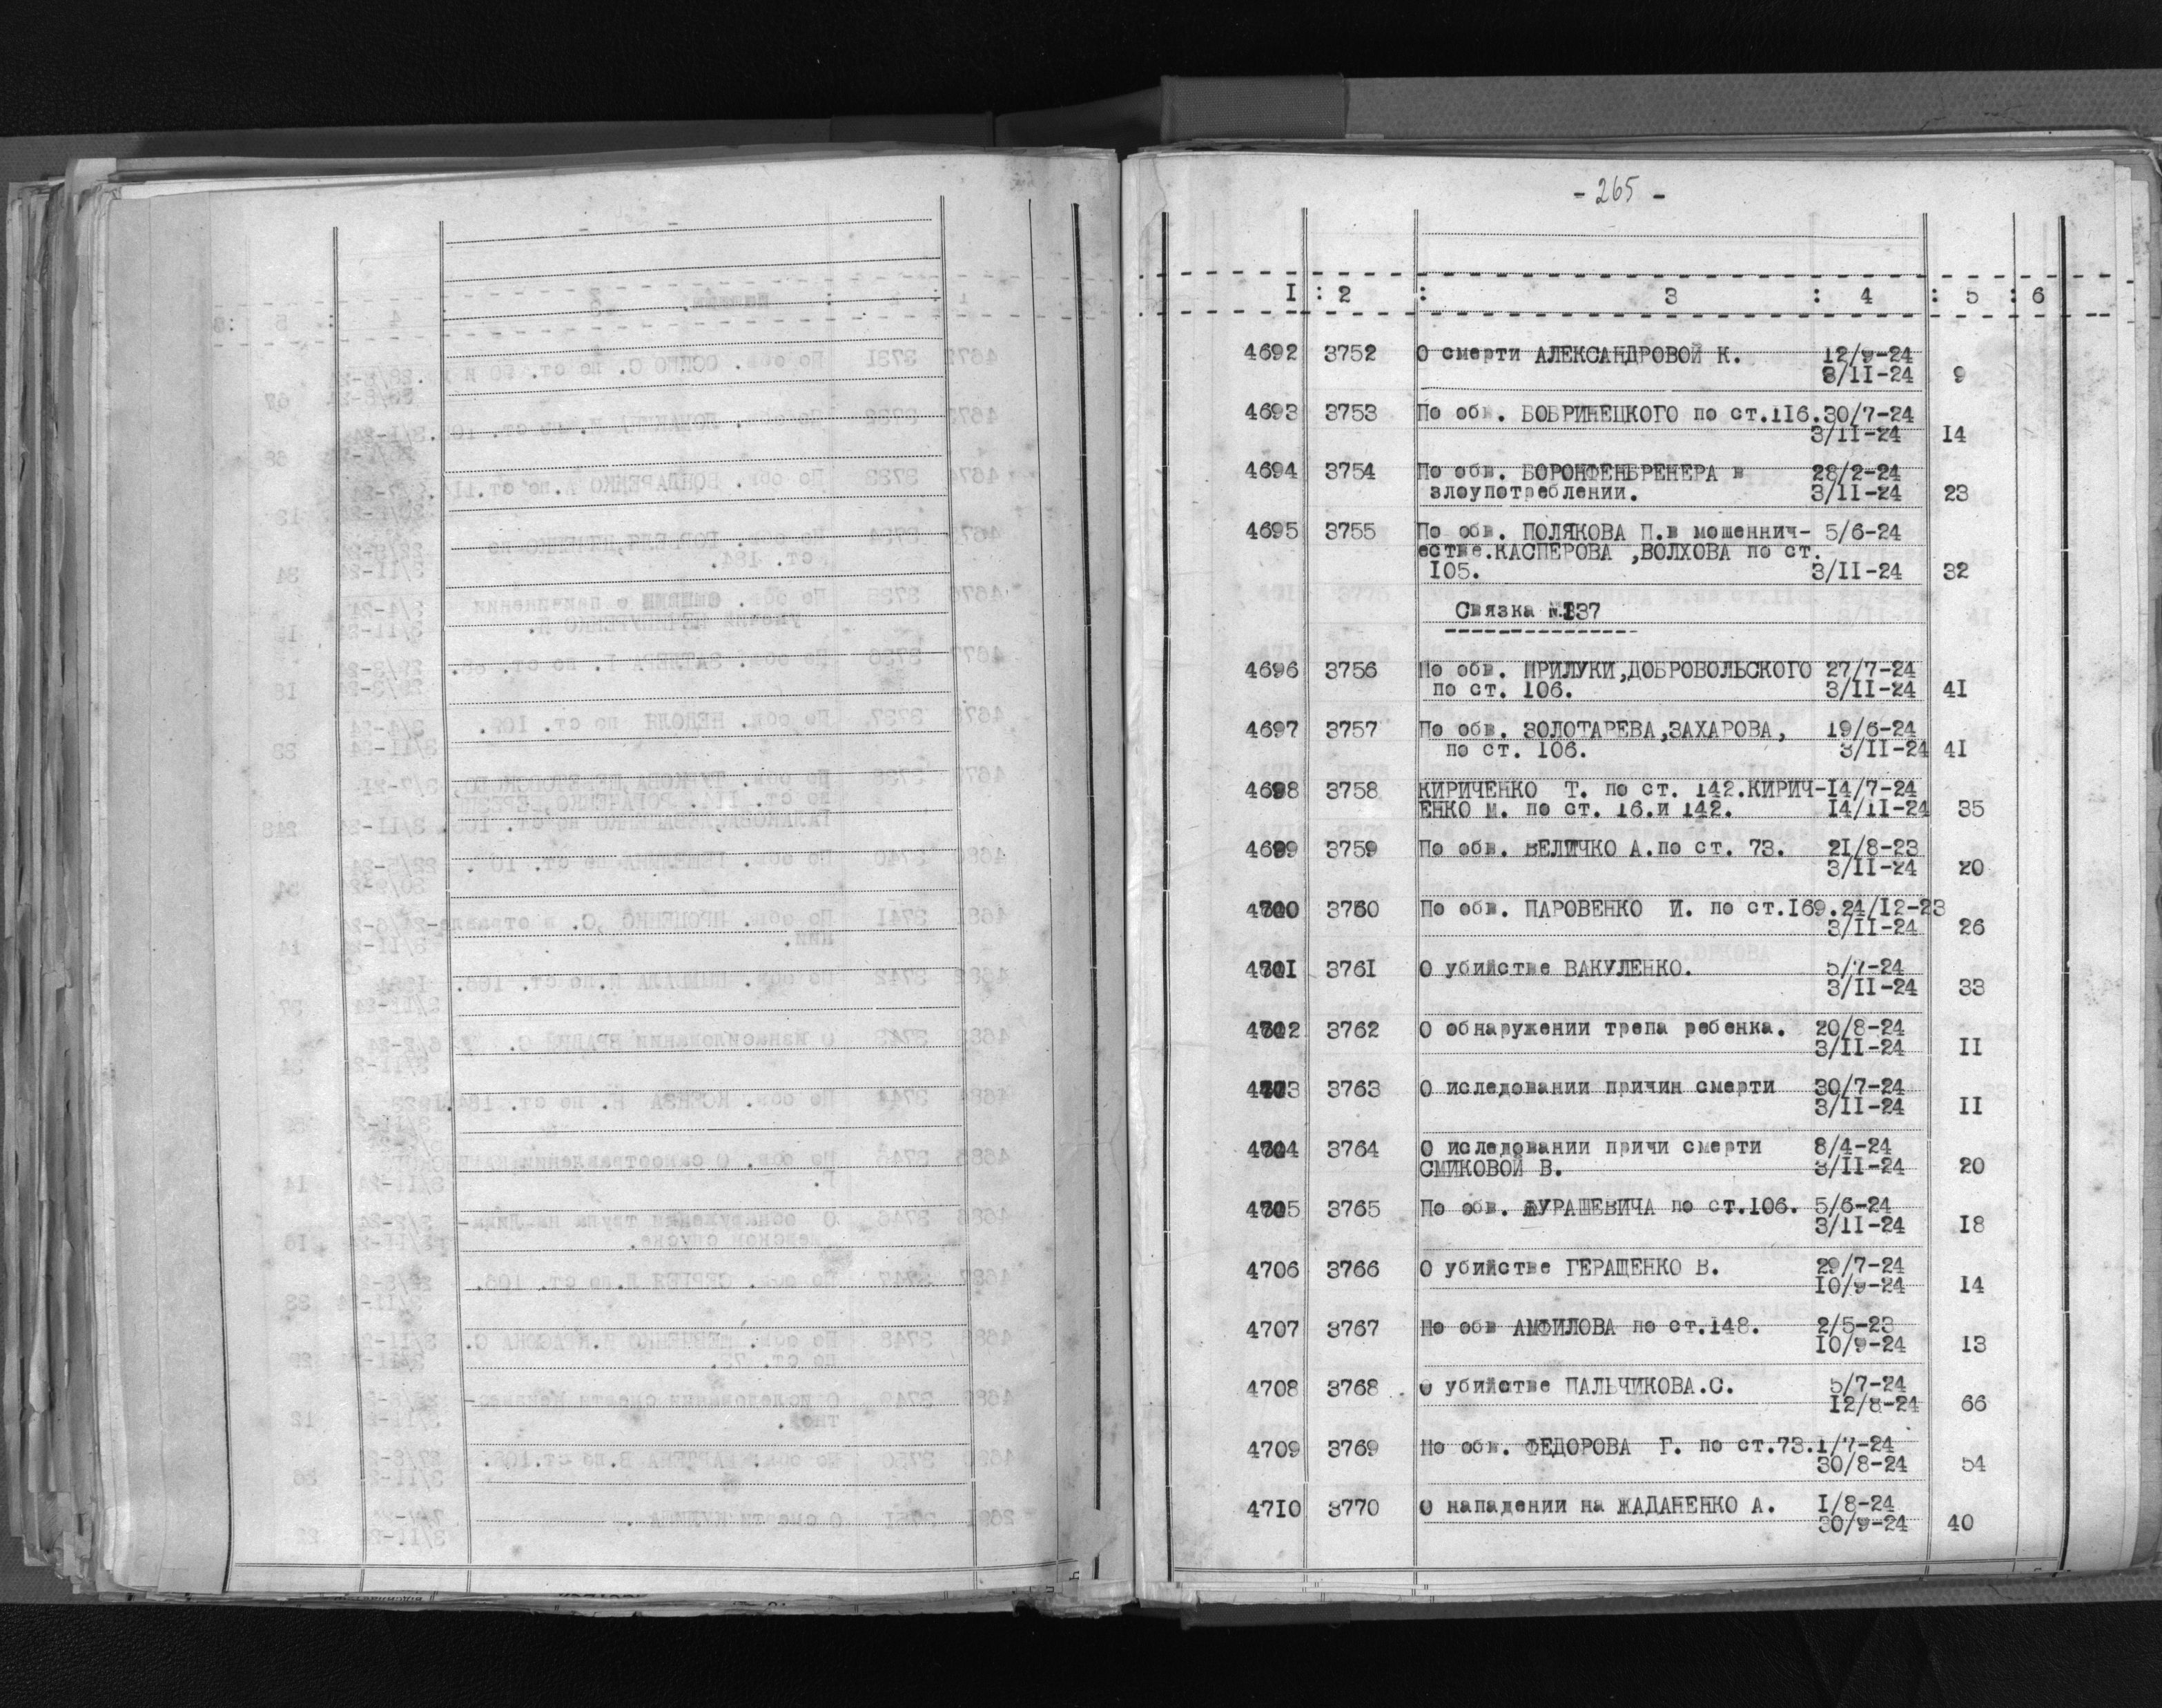 - 265 -
I : 2 : 3 : 4 : 5 : 6
4692 3752 О смерти АЛЕКСАНДРОВОЙ К. 12/9-24
3/II-24 9
4693 3753 По обв. БОБРИНЕЦКОГО по ст.116. 30/7-24
3/II-24 I4
4694 3754 По обв. БОРОНФЕНБРЕНЕРА в 28/2-24
злоупотреблении. 3/II-24 23
4695 3755 По обв. ПОЛЯКОВА П.в мошеннич- 5/6-24
естве.КАСПЕРОВА ,ВОЛХОВА по ст.
I05. 3/II-24 32
Связка №137
4696 3756 По обв. ПРИЛУКИ,ДОБРОВОЛЬСКОГО 27/7-24
по ст. I06. 3/II-24 4I
4697 3757 По обв. ЗОЛОТАРЕВА,ЗАХАРОВА, 19/6-24
по ст. I06. 3/II-24 4I
4698 3758 КИРИЧЕНКО Т. по ст. I42.КИРИЧ- I4/7-24
ЕНКО М. по ст. I6.и I42. I4/II-24 35
4699 3759 По обв. ВЕЛИЧКО А.по ст. 73. 2I/8-23
3/II-24 20
4700 3760 По обв. ПАРОВЕНКО И. по ст.I69. 24/I2-23
3/II-24 26
470I 376I О убийстве ВАКУЛЕНКО. 5/7-24
3/II-24 33
4702 3762 О обнаружении трепа ребенка. 20/8-24
3/II-24 II
4703 3763 О иследовании причин смерти 30/7-24
3/II-24 II
4704 3764 О иследовании причи смерти 8/4-24
СМИКОВОЙ В. 3/II-24 20
4705 3765 По обв. МУРАШЕВИЧА по ст.I06. 5/6-24
3/II-24 I8
4706 3766 О убийстве ГЕРАЩЕНКО В. 29/7-24
I0/9-24 I4
4707 3767 По обв АМФИЛОВА по ст.I48. 2/5-23
I0/9-24 I3
4708 3768 О убийстве ПАЛЬЧИКОВА.С. 5/7-24
I2/8-24 66
4709 3769 По обв. ФЕДОРОВА Г. по ст.73. I/7-24
30/8-24 54
47I0 3770 О нападении на ЖАДАНЕНКО А. I/8-24
30/9-24 40